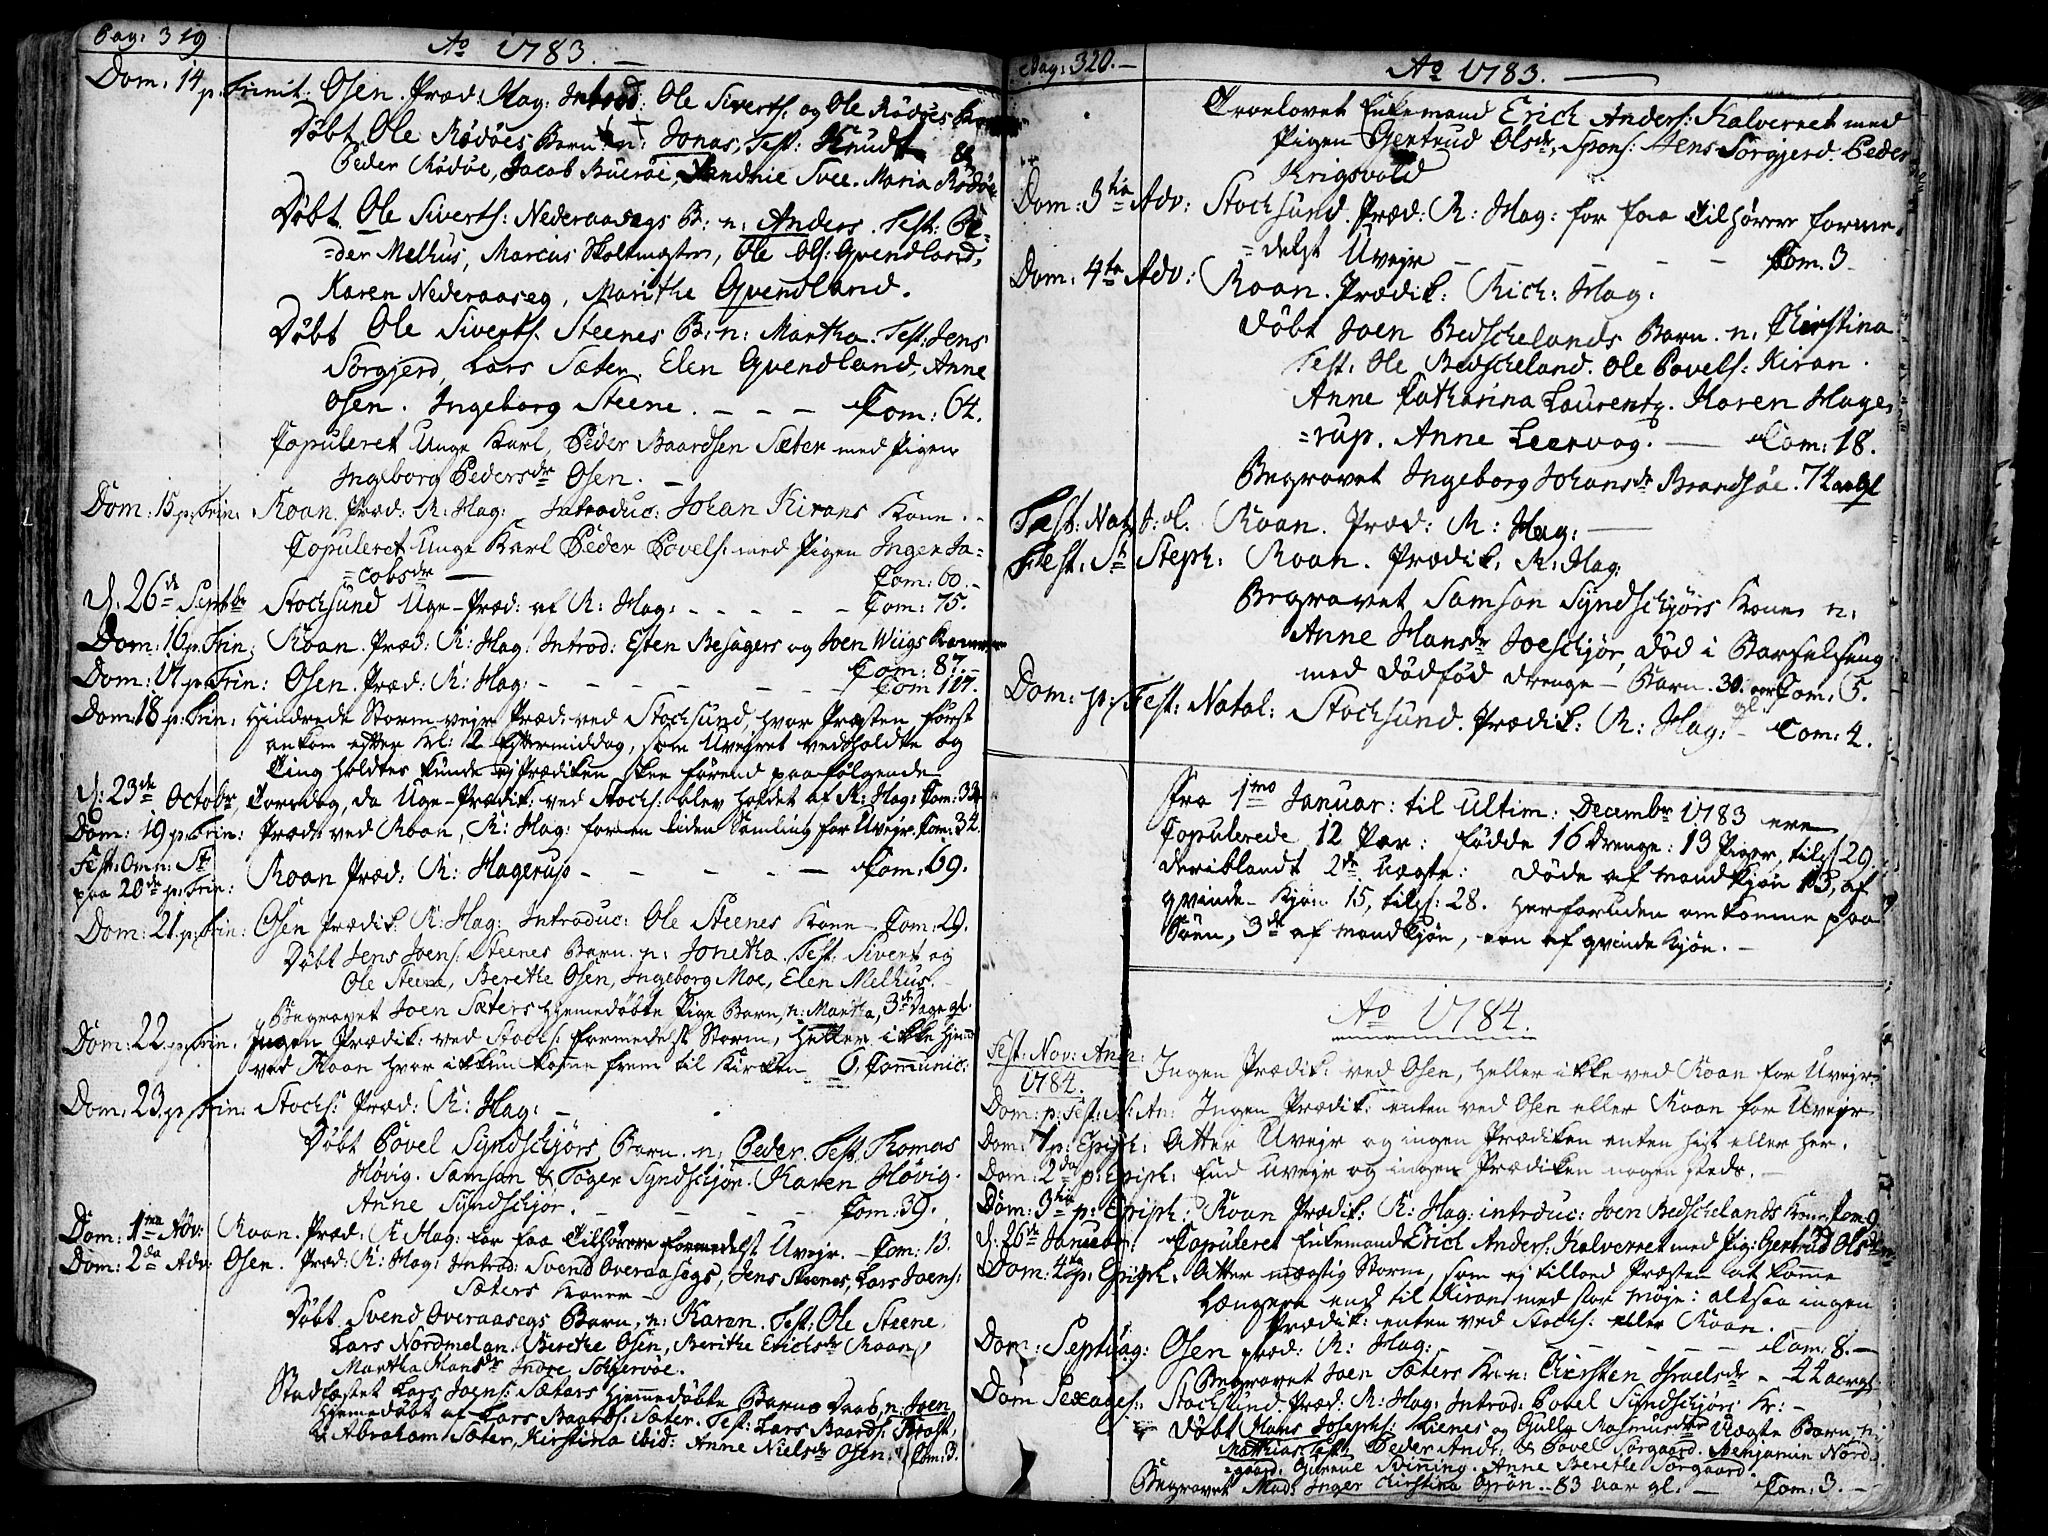 Pag: 319
Ao 1783.
Dom: 14 p. Trinit: Osen. Præd: Hag: Introd: Ole Siverts: og Ole Rødøes
Døbt Ole Rødøes Barn n: Jonas, Test: Knudt
Peder Rødøe, Jacob Buerøe, Svee. Maria Rødøe
Døbt Ole Siverts: Nederaasegs B: n: Anders. Test: Pe=
=der Melhus, Marcus Skolemester, Ole Ols: Qvendland,
Karen Nederaaseg, Marithe Qvendland.
Døbt Ole Siverts. Steenes B: n: Martha. Test: Jens
Sørgjerd, Lars Sæter, Elen Qvendland, Anne
Osen. Ingeborg Steene. - - - Com: 64.
Copuleret Unge Karl, Peder Baardsen Sæter med Pigen
Ingeborg Pedersdr Osen. -
Dom: 15 p: Trin: Roan. Præd: R: Hag: Introduc: Johan Kirans Kone. -
Copuleret Unge Karl Peder Povels: med Pigen Inger Ja=
=cobsdr — Com: 60. -
d: 26de Septbr Stocksund Uge-Præd: af R: Hag: - - - - - Com: 75.
Dom: 16 p. Trin: Roan. Præd: R: Hag: Introd: Esten Besagers og Joen Wiigs Koner
Com: 87. -
Dom: 17 p: Trin: Osen. Præd: R: Hag: - - - - - - Com 117.
Dom: 18 p: Trin: Hindrede Storm-vejr Præd: ved Stocksund, hvor Præsten først
ankom efter Kl: 12 Eftermiddag, som Uvejret vedholdte og
Ting holdtes kunde ej Prædiken skee førend paafølgende
d: 23de Octobr, Torsdag, da Uge-Prædik: ved Stocks: blev holdet af R: Hag: Com: 33.
Dom: 19 p: Trin: Præd: ved Roan, R: Hag: for en liden Samling for Uvejr. Com: 34.
Fest: Omn: St:
paa 20de p: Trin: Roan Præd: R: Hagerup - - - - - Com: 69.
Dom: 21. p: Trin: Osen Prædik: R: Hag: Introduc: Ole Steenes Kone - Com: 29.
Døbt Jens Joens: Steenes Barn. n: Jonetha. Test: Sivert og
Ole Steene, Berethe Osen, Ingeborg Moe, Elen Melhus.
Begravet Joen Sæters hjemedøbte Pige Barn, n: Martha, 3de Dage gl.
Dom: 22. p: Trin. Ingen Prædik: ved Stocks: formedelst Storm, heller ikke
ved Roan hvor ikkun komne frem til Kirken 0, Communic:
Dom: 23. p: Trin: Stocks: Præd: R: Hag: -
Døbt Povel Syndschjørs Barn. n: Peder. Test. Thomas
Høvig. Samson & Toger Syndschjør. Karen Høvig.
Anne Syndschjør. - - - - - Com: 39.
Dom: 1ma Adv: Roan. Præd: R Hag: for faa Tilhørere formedelst Uvejr. - Com: 13.
Dom: 2da Adv: Osen. Præd: R: Hag: Introd: Svend Overaasegs, Jens Steenes, Lars Joens:
Sæters Koner -
Døbt Svend Overaasegs Barn, n: Karen. Test: Ole Steene,
Lars Nordmelan. Berethe Osen, Berithe Erichsdr Roan,
Martha Hansdr Indre Schjervøe.
Stadfæstet Lars Joens: Sæters hjemmedøbte Barns Daab, n: Joen
hjemedøbt af Lars Baards: Sæter. Test: Lars Baards: Trast,
& Abraham Sæter, Kirstina ibid: Anne Nielsdr Osen. Com: 3.
Pag: 320. -
Ao 1783. —
Troelovet Enkemand Erich Anders: Kalverret med
Pigen Gertrud Olsdr, Spons: Jens Sørgjerd. Peder
Krigsvold
Dom: 3tia Adv: Stocksund. Præd: R: Hag: for faa Tilhørere forme=
=delst Uvejr - - - - - - Com. 3.
Dom: 4ta Adv: Roan. Prædik: Rich: Hag:
Døbt Joen Bedschelands Barn. n: Chirstina
Test: Ole Bedscheland. Ole Povels: Kiran.
Anne Catharina Laurentz. Karen Hage=
=rup. Anne Leervog. — Com: 18.
Begravet Ingeborg Johansdr Brandsøe. 74 aar gl
Fest: Nat: Roan. Præd: R: Hag: —
Fest: St Steph: Roan. Prædik: R: Hag:
Begravet Samson Syndschjørs Kone n:
Anne Hansdr Joeschjør, død i Barselseng
med dødfød Drenge-Barn. 30. aar gl. Com: 5.
Dom: p: Fest: Natal: Stocksund. Prædik: R: Hag: - Com: 4.
Fra 1mo Januar: til ultim: Decembr 1783 ere
Copulerede 12 Par: fødde 16 Drenge: 13 Piger, tils: 29.
deriblandt 2de uægte: Døde af Mandkjøn 13, af
qvinde-Kjøn 15, tils: 28. Herforuden omkomne paa
Søen, 3de af Mandkjøn, een af qvinde Kjøn. -
Ao 1784.
Fest: Nov: Ann:
1784. Ingen Prædik: ved Osen, heller ikke ved Roan for Uvejr.
Dom: p: Fest: N: An: Ingen Prædik: enten ved Osen eller Roan for Uvejr
Dom: 1 p: Epiph: Atter Uvejr og ingen Prædiken enten hist eller her.
Dom: 2da p: Epiph: End Uvejr og ingen Prædiken nogen steds. -
Dom: 3tia p: Epiph: Roan Prædik: R: Hag: introduc: Joen Bedschelands Kone, Com: 9.
d: 26de Januar: Copuleret Enkemand Erich Anders: Kalverret med Pig: Gertrud Olsdr
Dom: 4ta p: Epiph: Atter mægtig Storm, som ej tillod Præsten at komme
længere end til Kiran med stor møje: altsaa ingen
Prædik: enten ved Stocks: eller Roan.
Dom: Septuag: Osen præd: R: Hag: - - - - - - Com: 8. -
Begravet Joen Sæters K: n: Chirsten Israelsdr - 44 aar gl.
Dom Sexages: Stocksund. Præd: R: Hag: Introd: Povel Sundschjørs K: -
Døbt Hans Josephs: Lienes og Gulla Rasmusdr Uægte Barn, n:
Mathias, Test: Peder And: & Povel Sørgaard. Benjamin Nord=
=gaard. Gurene Svinning. Anne Berethe Sørgaard.
Begravet Mad: Inger Chirstina Grøn. 83 aar gl. - Com: 3. -